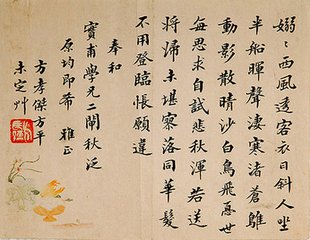 嫋〻西風透客衣日斜人坐
半船暉聲淒寒渚蒼鵰
動影散晴沙白鳥飛憂世
每思求自試悲秋渾若送
將歸未堪寥落同華髮
不用登臨悵願違
奉和
實甫學兄二閘秋泛
原均即希 雅正
方孝傑方平
未定艸